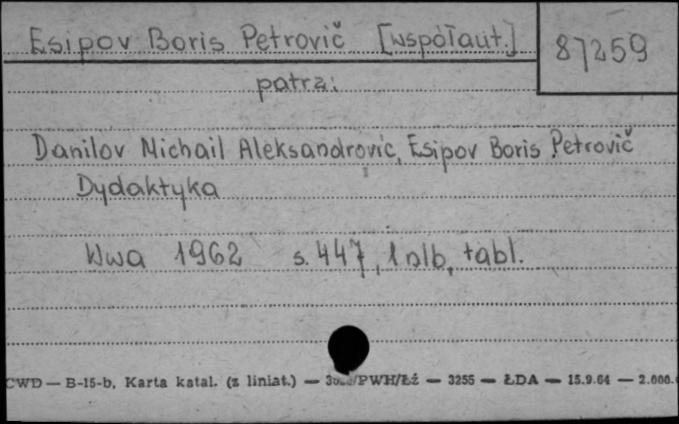 Esipov Boris Petrovič [współaut.] 87259
patrz:
Danilov Michail Aleksandrovic, Esipov Boris Petrovič
Dydaktyka
Wwa 1962 s. 447, 1 nlb, tabl.
CWD — B-15-b, Karta katal. (z liniat.) — /PWH/Łź — 3255 — ŁDA — 15.9.64 — 2.000.